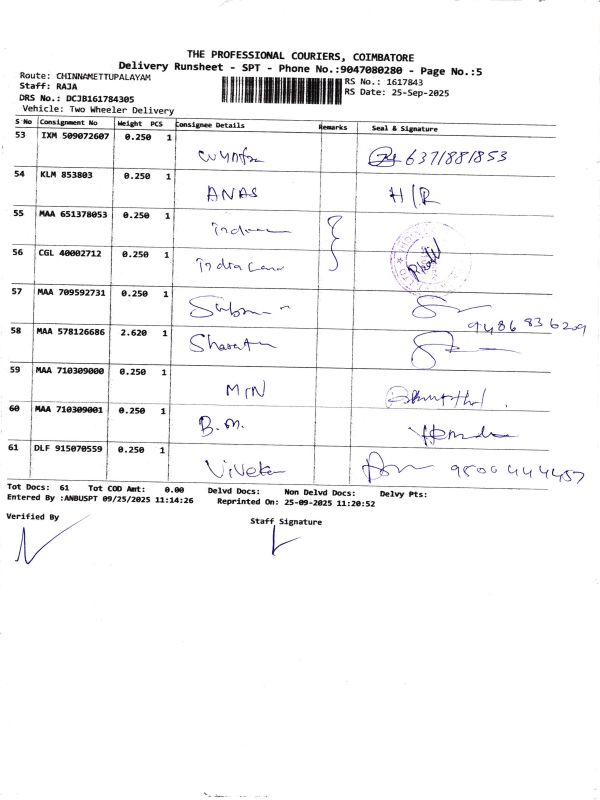 THE PROFESSIONAL COURIERS, COIMBATORE
Delivery Runsheet - SPT - Phone No.:9047080280 - Page No.:5
Route: CHINNAMETTUPALAYAM
RS No.: 1617843
Staff: RAJA
RS Date: 25-Sep-2025
DRS No.: DCJB161784305
Vehicle: Two Wheeler Delivery
S No Consignment No Weight PCS Consignee Details Remarks Seal & Signature
53 IXM 509072607 0.250 1 6371881853
54 KLM 853803 0.250 1 ANAS H/R
55 MAA 651378053 0.250 1
56 CGL 40002712 0.250 1
57 MAA 709592731 0.250 1
9486836209
58 MAA 578126686 2.620 1
59 MAA 710309000 0.250 1 MIN
60 MAA 710309001 0.250 1 B.M.
61 DLF 915070559 0.250 1 Vivek 9500444457
Tot Docs: 61 Tot COD Amt: 0.00 Delvd Docs: Non Delvd Docs: Delvy Pts:
Entered By :ANBUSPT 09/25/2025 11:14:26 Reprinted On: 25-09-2025 11:20:52
Verified By
Staff Signature